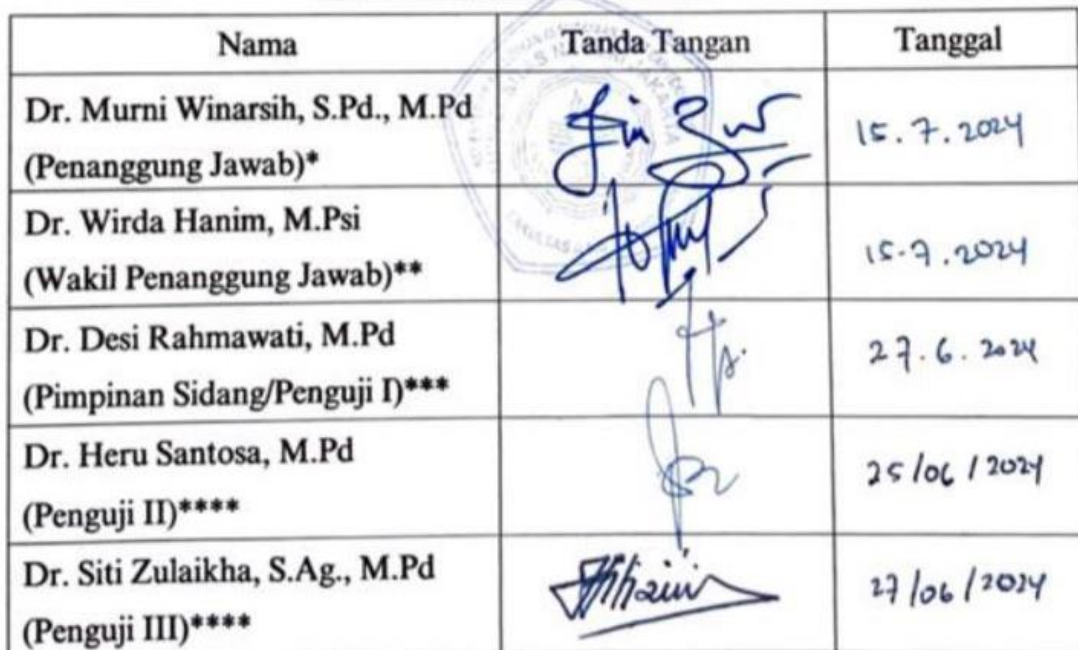 Nama Tanda Tangan Tanggal
Dr. Murni Winarsih, S.Pd., M.Pd
(Penanggung Jawab)* 15.7.2024
Dr. Wirda Hanim, M.Psi
(Wakil Penanggung Jawab)** 15.7.2024
Dr. Desi Rahmawati, M.Pd
(Pimpinan Sidang/Penguji I)*** 27.6.2024
Dr. Heru Santosa, M.Pd
(Penguji II)**** 25/06/2024
Dr. Siti Zulaikha, S.Ag., M.Pd
(Penguji III)**** 27/06/2024